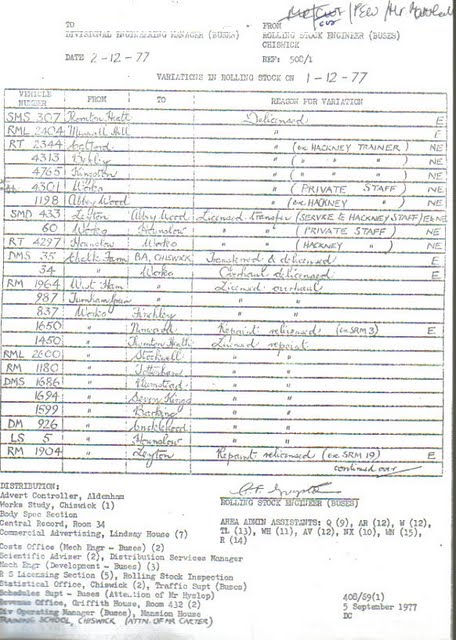 TO FROM
DIVISIONAL ENGINEERING MANAGER (BUSES) ROLLING STOCK ENGINEER (BUSES)
CHISWICK
DATE 2-12-77 REF: 500/1
VARIATIONS IN ROLLING STOCK ON 1-12-77
VEHICLE NUMBER FROM TO REASON FOR VARIATION
SMS 307 Delicensed E
RML 2404 Muswell Hill " E
RT 2344 Catford " (ex HACKNEY TRAINER) NE
4313 Finchley " ( " " " ) NE
4765 Kingston " ( " " " ) NE
4301 Works " (PRIVATE STAFF) NE
1198 Abbey Wood " (ex HACKNEY " ) NE
SMD 433 Leyton Abbey Wood Licensed transfer (SERVICE & HACKNEY STAFF)
60 Works Hounslow " (PRIVATE STAFF) NE
RT 4297 Hounslow Works " (HACKNEY " ) NE
DMS 35 Chalk Farm BA, CHISWICK Transferred & delicensed E
34 " Works Overhaul delicensed E
RM 1964 West Ham " Licensed overhaul
987 Turnham Green " "
837 Works Finchley "
1650 " Norwood Repaint relicensed (ex SRM 3) E
1450 " Thornton Heath Licensed repaint
RML 2600 " Stockwell " "
RM 1180 " Tottenham " "
DMS 1686 " Plumstead " "
1694 " Seven Kings " "
1599 " Barking " "
DM 926 " Cricklewood " "
LS 5 " Hounslow " "
RM 1904 " Leyton Repaint relicensed (ex SRM 19) E
continued over
DISTRIBUTION:
Advert Controller, Aldenham
Works Study, Chiswick (1)
Body Spec Section
Central Record, Room 34
Commercial Advertizing, Lindsay House (7)
Costs Office (Mech Engr - Buses) (2)
Scientific Adviser (2), Distribution Services Manager
Mech Engr (Development - Buses) (3)
R S Licensing Section (5), Rolling Stock Inspection
Statistical Office, Chiswick (2), Traffic Supt (Buses)
Schedules Supt - Buses (Attention of Mr Hyslop)
Revenue Office, Griffith House, Room 432 (2)
Div Operating Manager (Buses), Mansion House
TRAINING SCHOOL, CHISWICK (ATTN. OF MR CARTER)
ROLLING STOCK ENGINEER (BUSES)
AREA ADMIN ASSISTANTS: Q (9), AR (12), W (12),
TL (13), WH (11), AV (12), NX (10), WN (15),
R (14)
408/69(1)
5 September 1977
DC